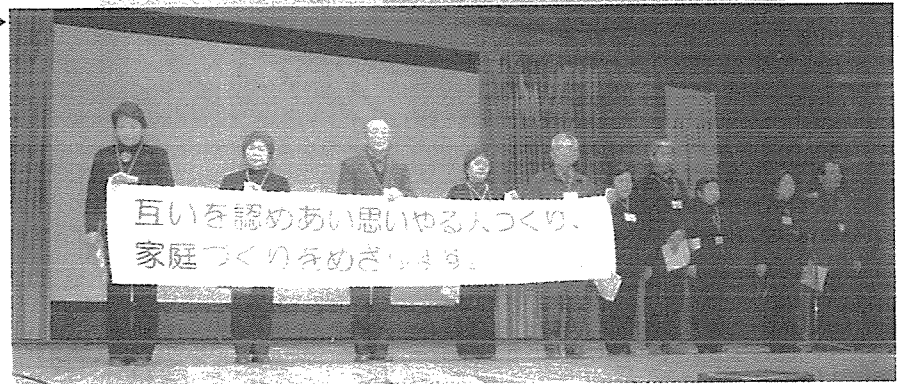 互いを認めあい思いやる人づくり、
家庭づくりをめざします。